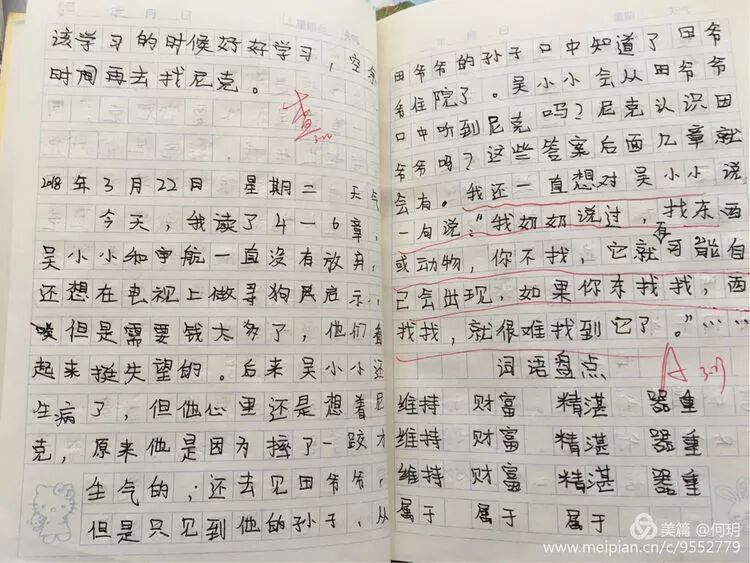 年 月 日 星期 天气
该学习的时候好好学习，空余
时间再去找尼克。
查
2018年3月22日 星期二 天气
今天，我读了4—6章，
吴小小和宇航一直没有放弃，
还想在电视上做寻狗启示，
但是需要钱太多了，他们看
起来挺失望的。后来吴小小还
生病了，但他心里还是想着尼
克，原来他是因为摔了一跤才
生气的；还去见田爷爷，
但是只见到他的孙子，从
年 月 日 星期 天气
田爷爷的孙子口中知道了田爷
爷住院了。吴小小会从田爷爷
口中听到尼克吗？尼克认识田
爷爷吗？这些答案后面几章就
会有。我还一直想对吴小小说
一句说：“我奶奶说过，找东西
或动物，你不找，它就有可能自
己会出现，如果你东找找，西
找找，就很难找到它了。”……
词语盘点
A
维持 财富 精湛 器重
维持 财富 精湛 器重
维持 财富 精湛 器重
属于 属于 属于
美篇 @何玥
www.meipian.cn/c/9552779